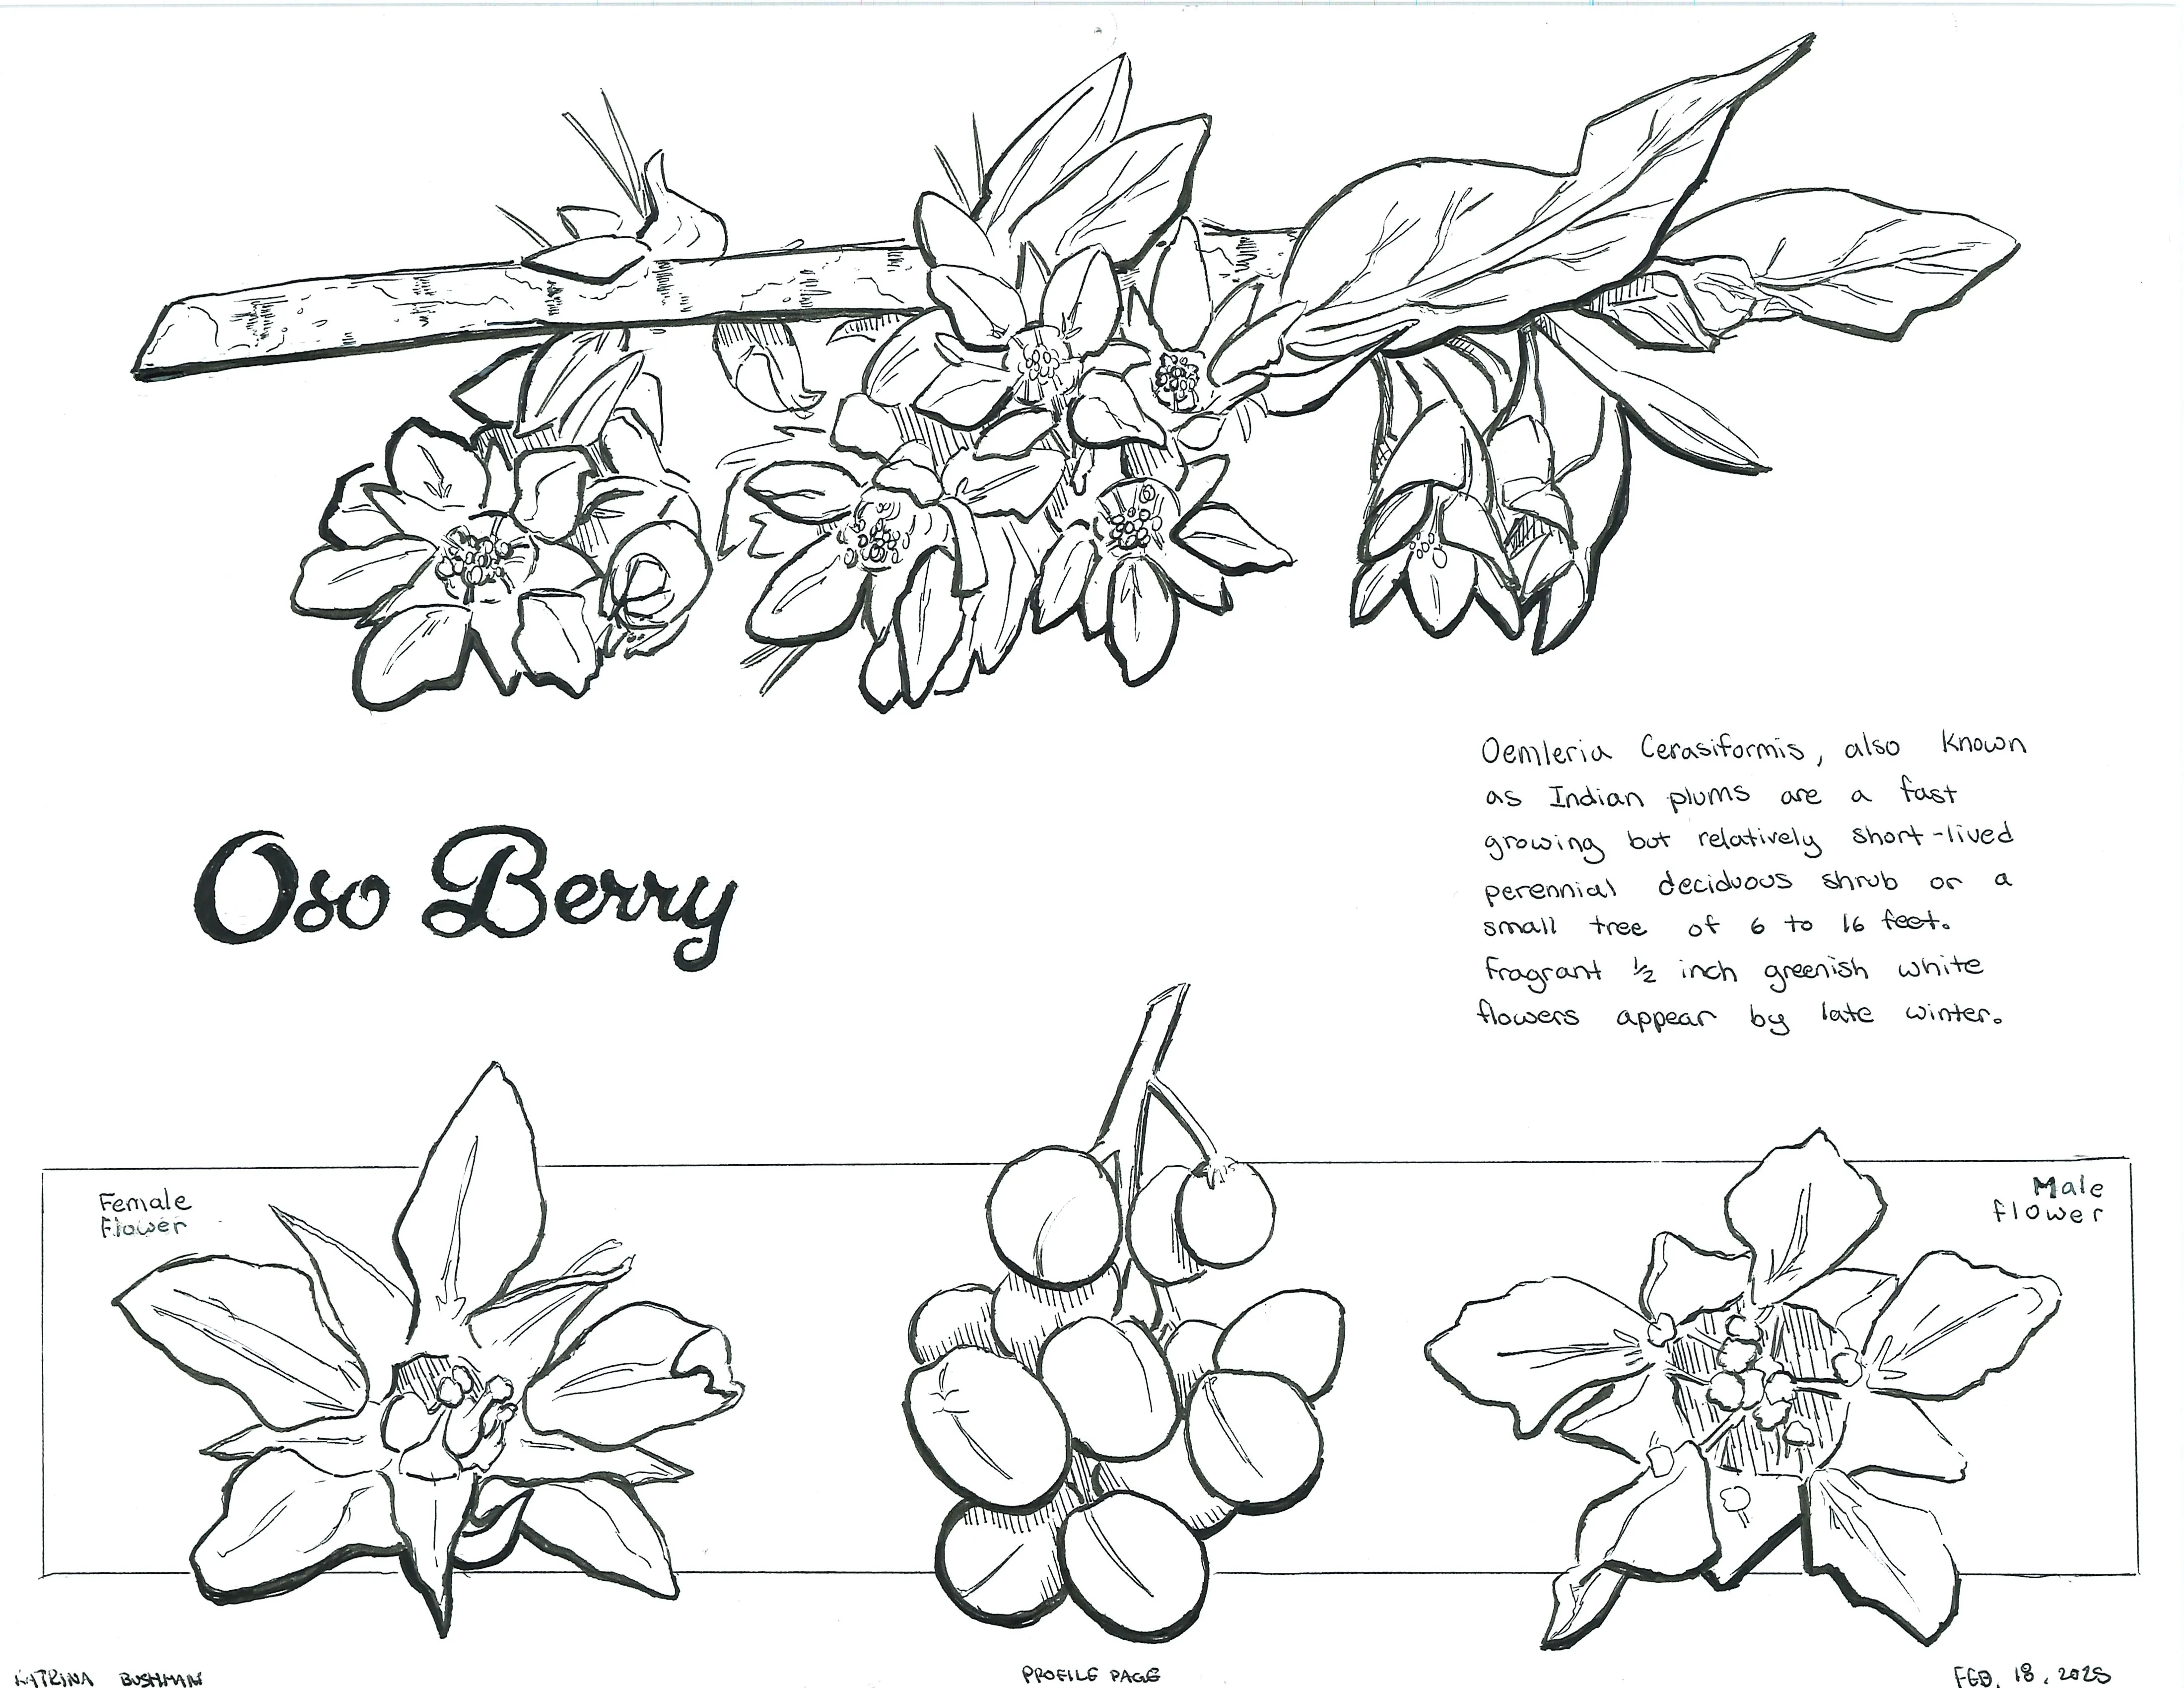 Oemleria Cerasiformis, also known
as Indian plums are a fast
growing but relatively short-lived
perennial deciduous shrub or a
small tree of 6 to 16 feet.
Fragrant ½ inch greenish white
flowers appear by late winter.
Oso Berry
Female
Flower
Male
flower
KATRINA BUSHMAN
PROFILE PAGE
FEB. 18, 2025